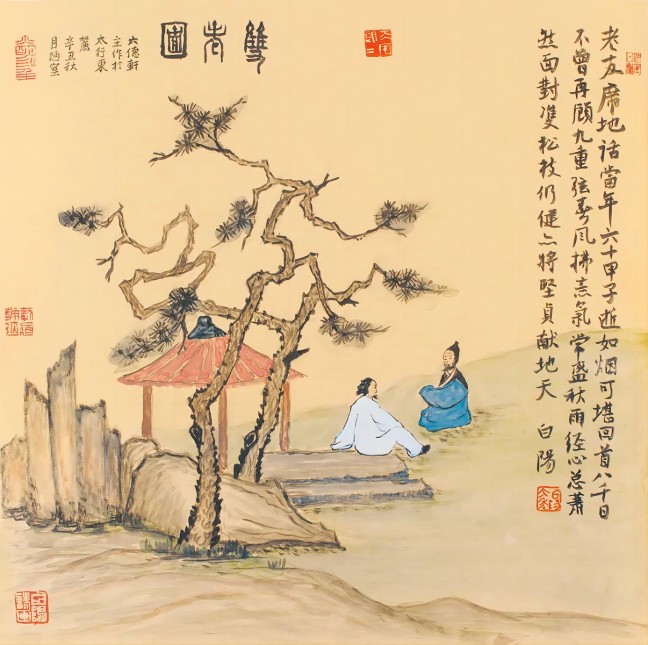 老友席地話當年六十甲子逝如烟可堪回首八千日
不曾再顧九重弦春風拂意氣常盛秋雨經心总蕭
然面對雙松枝仍健亦將堅貞献地天 白陽
雙老圖
六德軒
主作於
太行東
麓
辛丑秋
月陋室